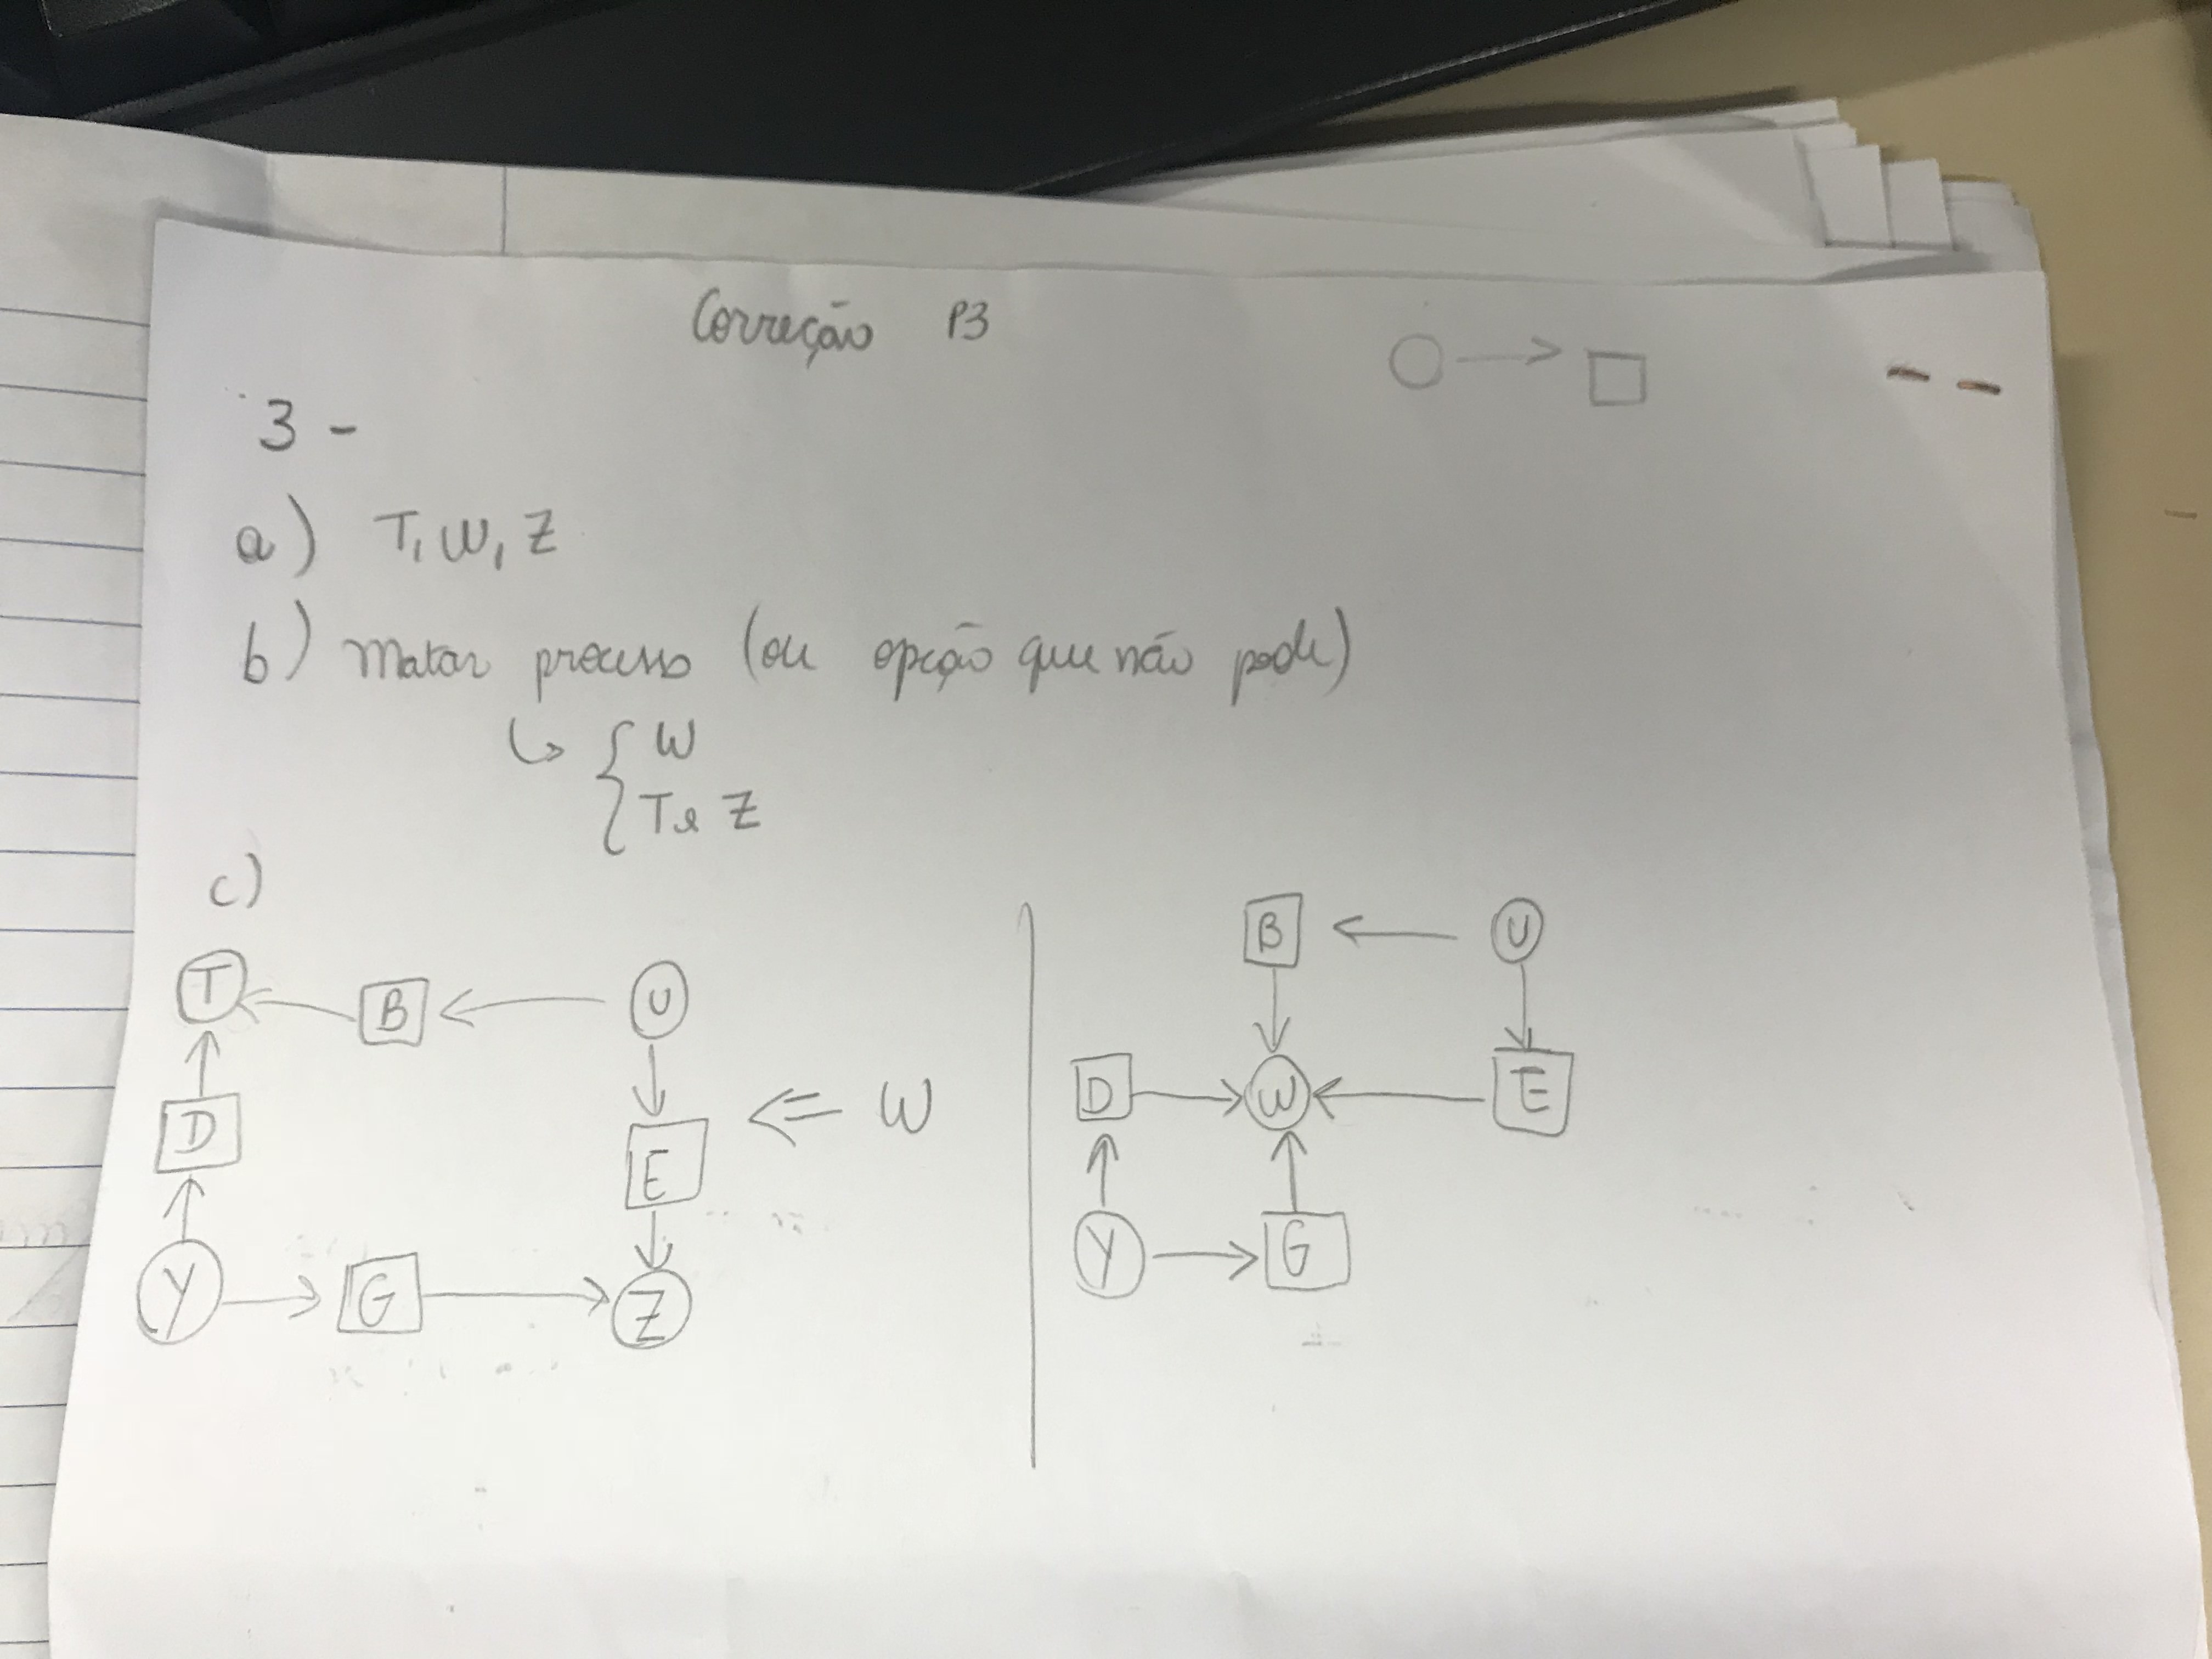 Correção P3
3 -
a) T, W, Z
b) Matar processo (ou opção que não pode)
W
T e Z
c)
T B U
D E W
Y G Z
B U
D W E
Y G